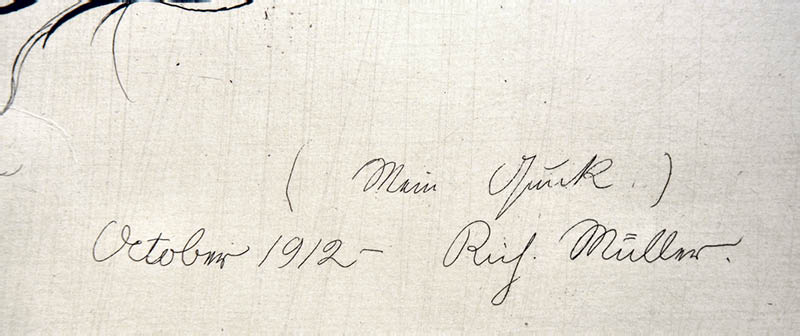 ( Mein )
October 1912 - Rich. Müller.